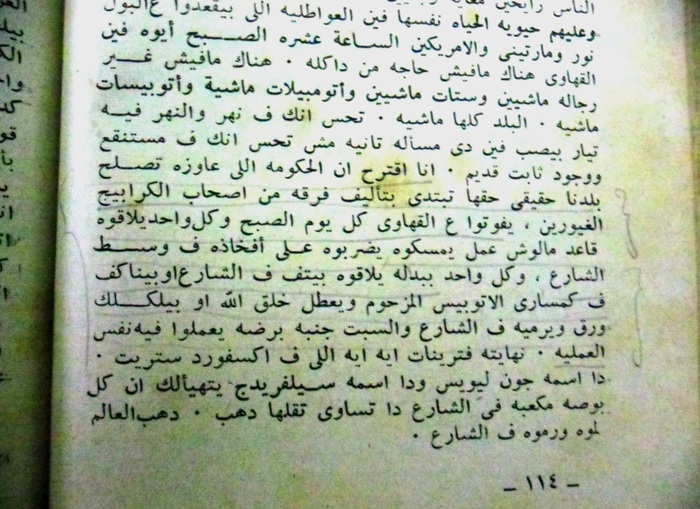 الناس رايحين
وعليهم حيويه الحياه نفسها فين العواطليه اللى بيقعدوا ع البول
نور ومارتينى والامريكين الساعة عشره الصبح أيوه فين
القهاوى هناك مافيش حاجه من داكله . هناك مافيش غير
رجاله ماشيين وستات ماشيين وأتومبيلات ماشية وأتوبيسات
ماشيه . البلد كلها ماشيه . تحس انك ف نهر والنهر فيه
تيار بيصب فين دى مسأله تانيه مش تحس انك ف مستنقع
ووجود ثابت قديم . انا اقترح ان الحكومه اللى عاوزه تصلح
بلدنا حقيقى حقها تبتدى بتأليف فرقه من اصحاب الكرابيج
الغيورين ، يفوتوا ع القهاوى كل يوم الصبح وكل واحد يلاقوه
قاعد مالوش عمل يمسكوه يضربوه على أفخاذه ف وسط
الشارع ، وكل واحد ببدله يلاقوه بيتف ف الشارع او بيناكف
ف كمسارى الاتوبيس المزحوم ويعطل خلق الله او بيلكلك
ورق ويرميه ف الشارع والست جنبه برضه يعملوا فيه نفس
العمليه . نهايته فترينات ايه ايه اللى ف اكسفورد ستريت .
دا اسمه جون ليويس ودا اسمه سيلفريدج يتهيألك ان كل
بوصه مكعبه فى الشارع دا تساوى تقلها دهب . دهب العالم
لموه ورموه ف الشارع .
ـ ١١٤ ـ